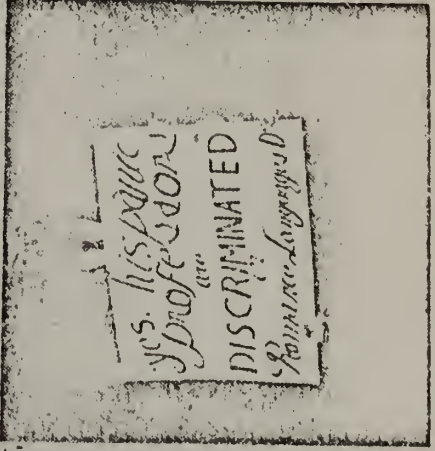 yes. hispanic
professors
are
DISCRIMINATED
Romance Languages D